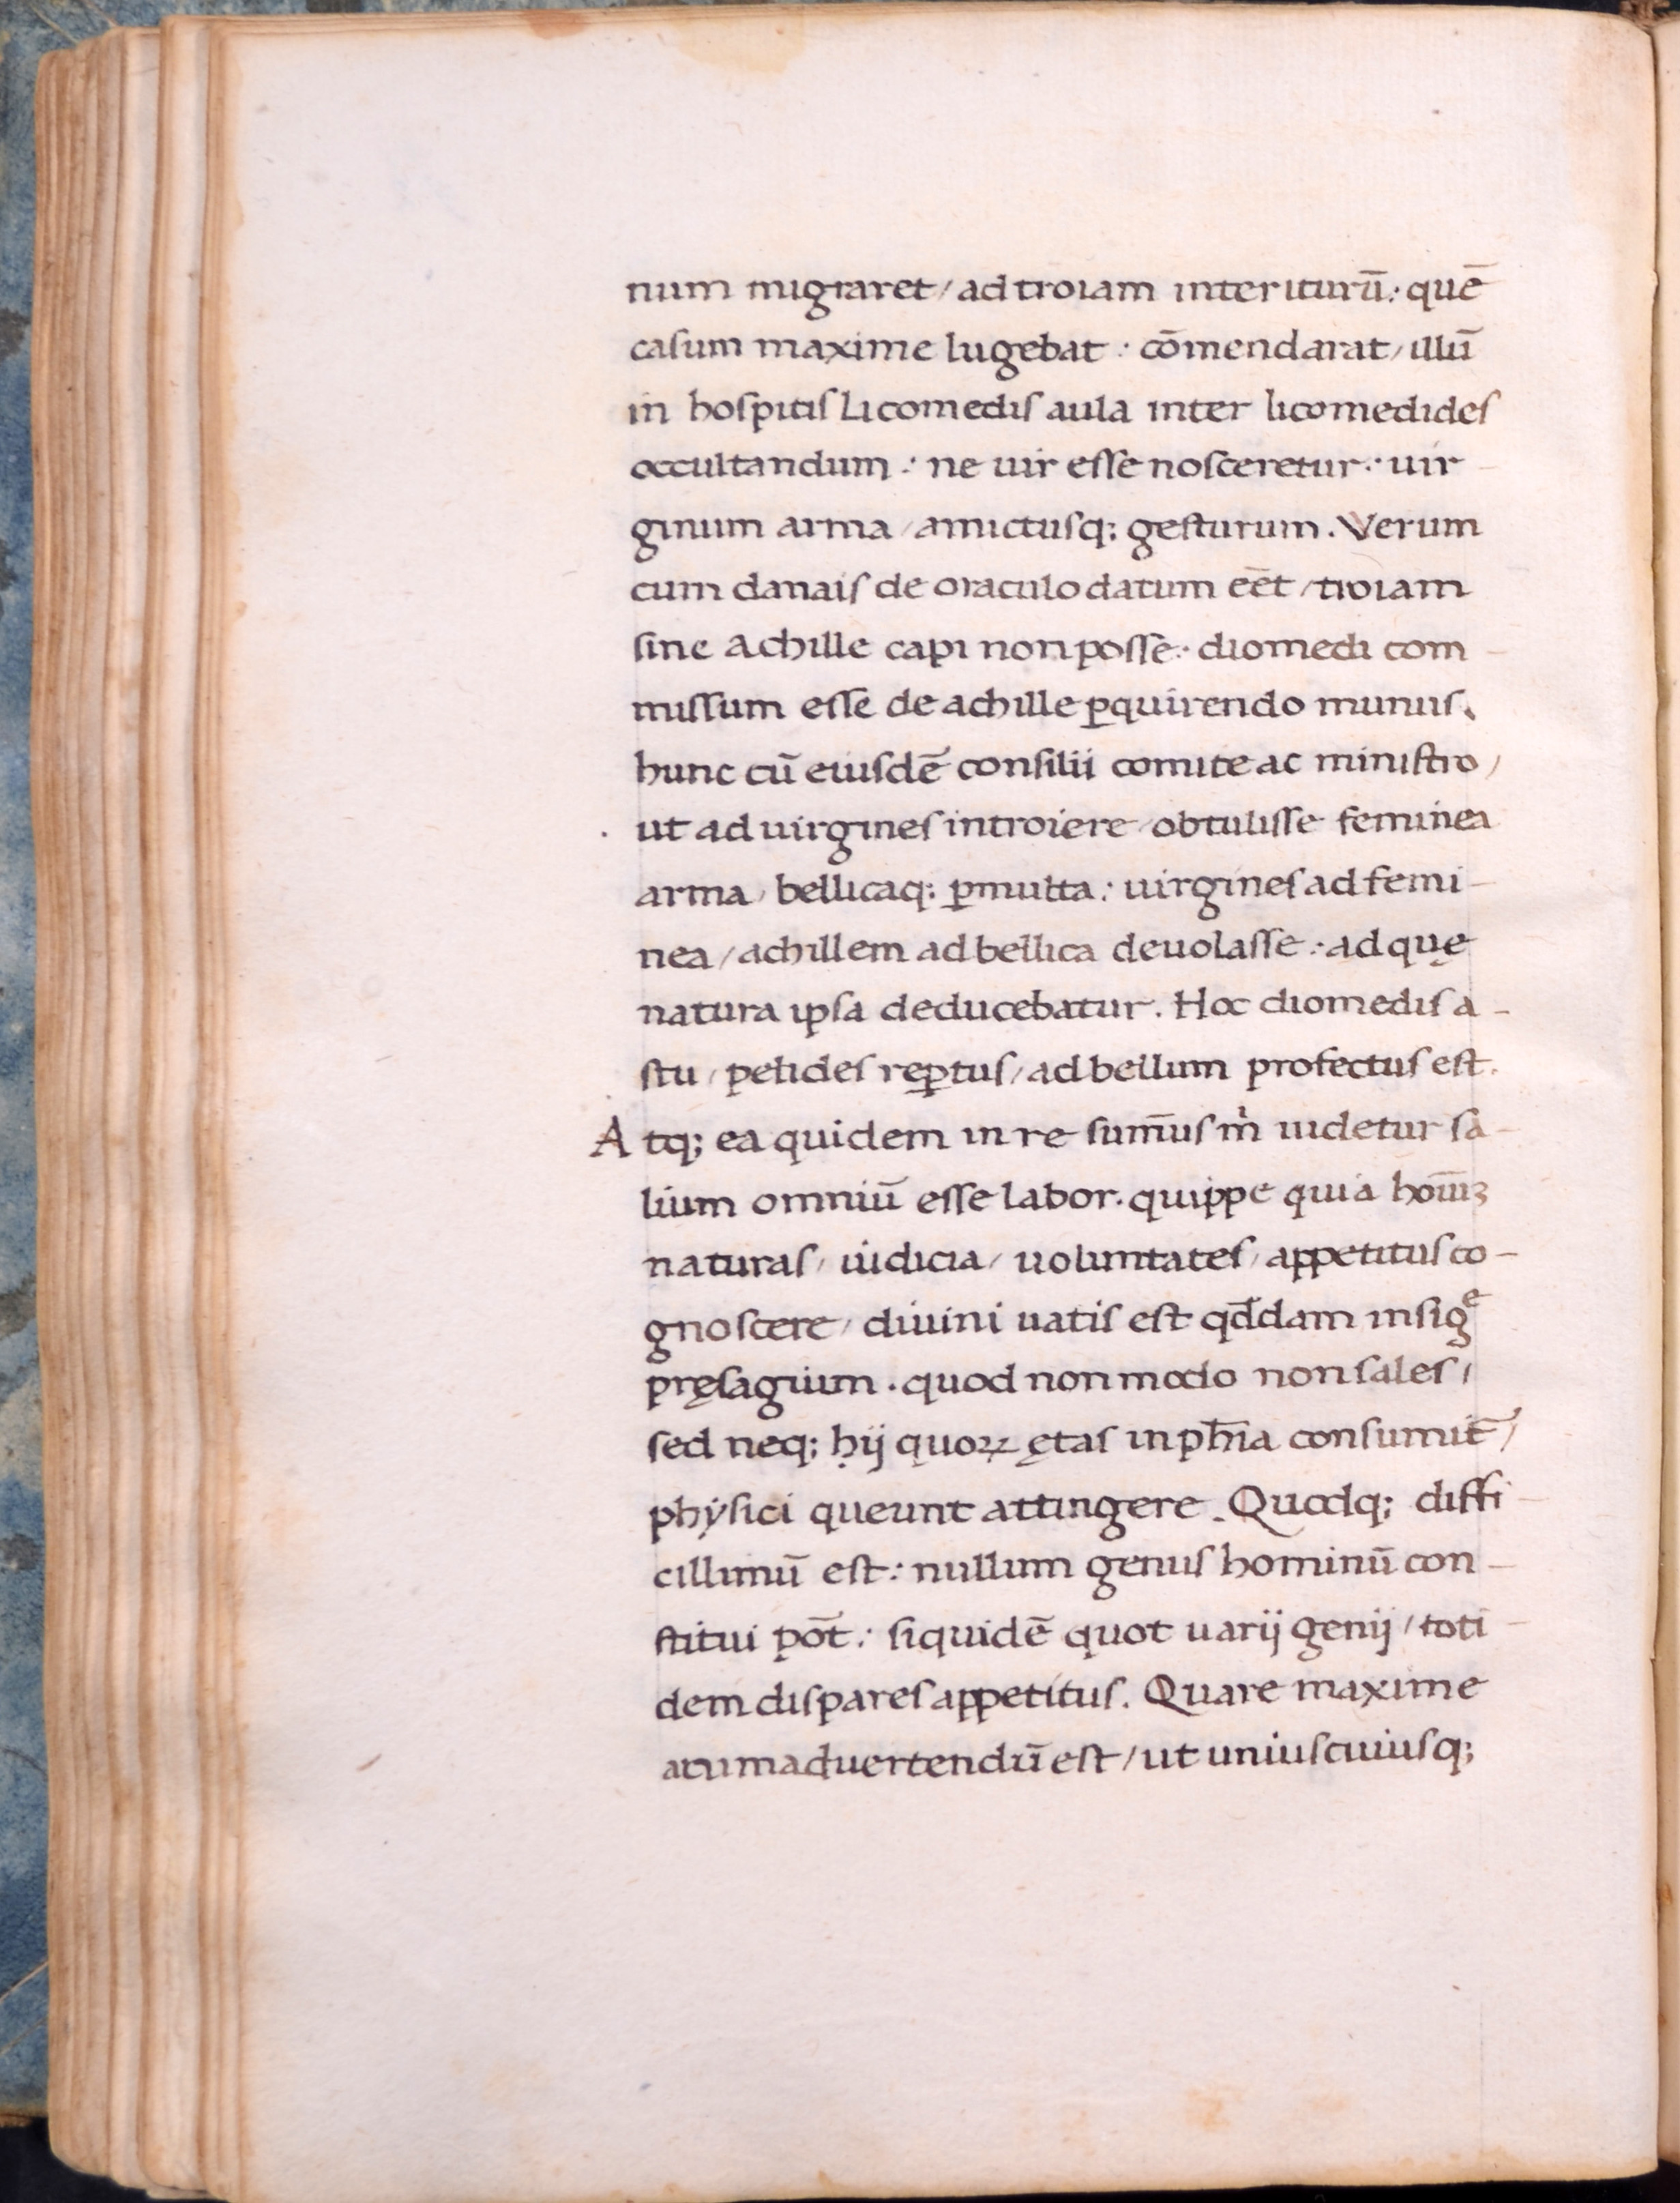 num migraret / ad troiam interiturū: quē
casum maxime lugebat: cōmendarat / illū
in hospitis Licomedis aula inter licomedides
occultandum: ne uir esse nosceretur: uir-
ginum arma / amictusq; gesturum. Verum
cum danais de oraculo datum eēt / troiam
sine Achille capi non posse: diomedi com-
missum esse de achille ꝑquirendo munus.
hunc cū eiusdē consilii comite ac ministro /
ut ad uirgines introiere / obtulisse feminea
arma / bellicaq; ꝑmulta: uirgines ad femi-
nea / achillem ad bellica deuolasse: ad quę
natura ipsa deducebatur. Hoc diomedis a-
stu / pelides reꝑtus / ad bellum profectus est.
Atq; ea quidem in re sum̄us m̍ uidetur sa-
lium omniū esse labor. quippe quia hoīuꝫ
naturas / iudicia / uoluntates / appetitus co-
gnoscere / diuini uatis est qd̄dam insigᵉ
pręsagium. quod non modo non sales /
sed neq; hij quoꝝ ętas in ph̄ia consumit᷑ /
physici queunt attingere. Quodq; diffi-
cillimū est: nullum genus hominū con-
stitui pōt: siquidē quot uarij genij / toti-
dem dispares appetitus. Quare maxime
animaduertendū est / ut uniuscuiusq;